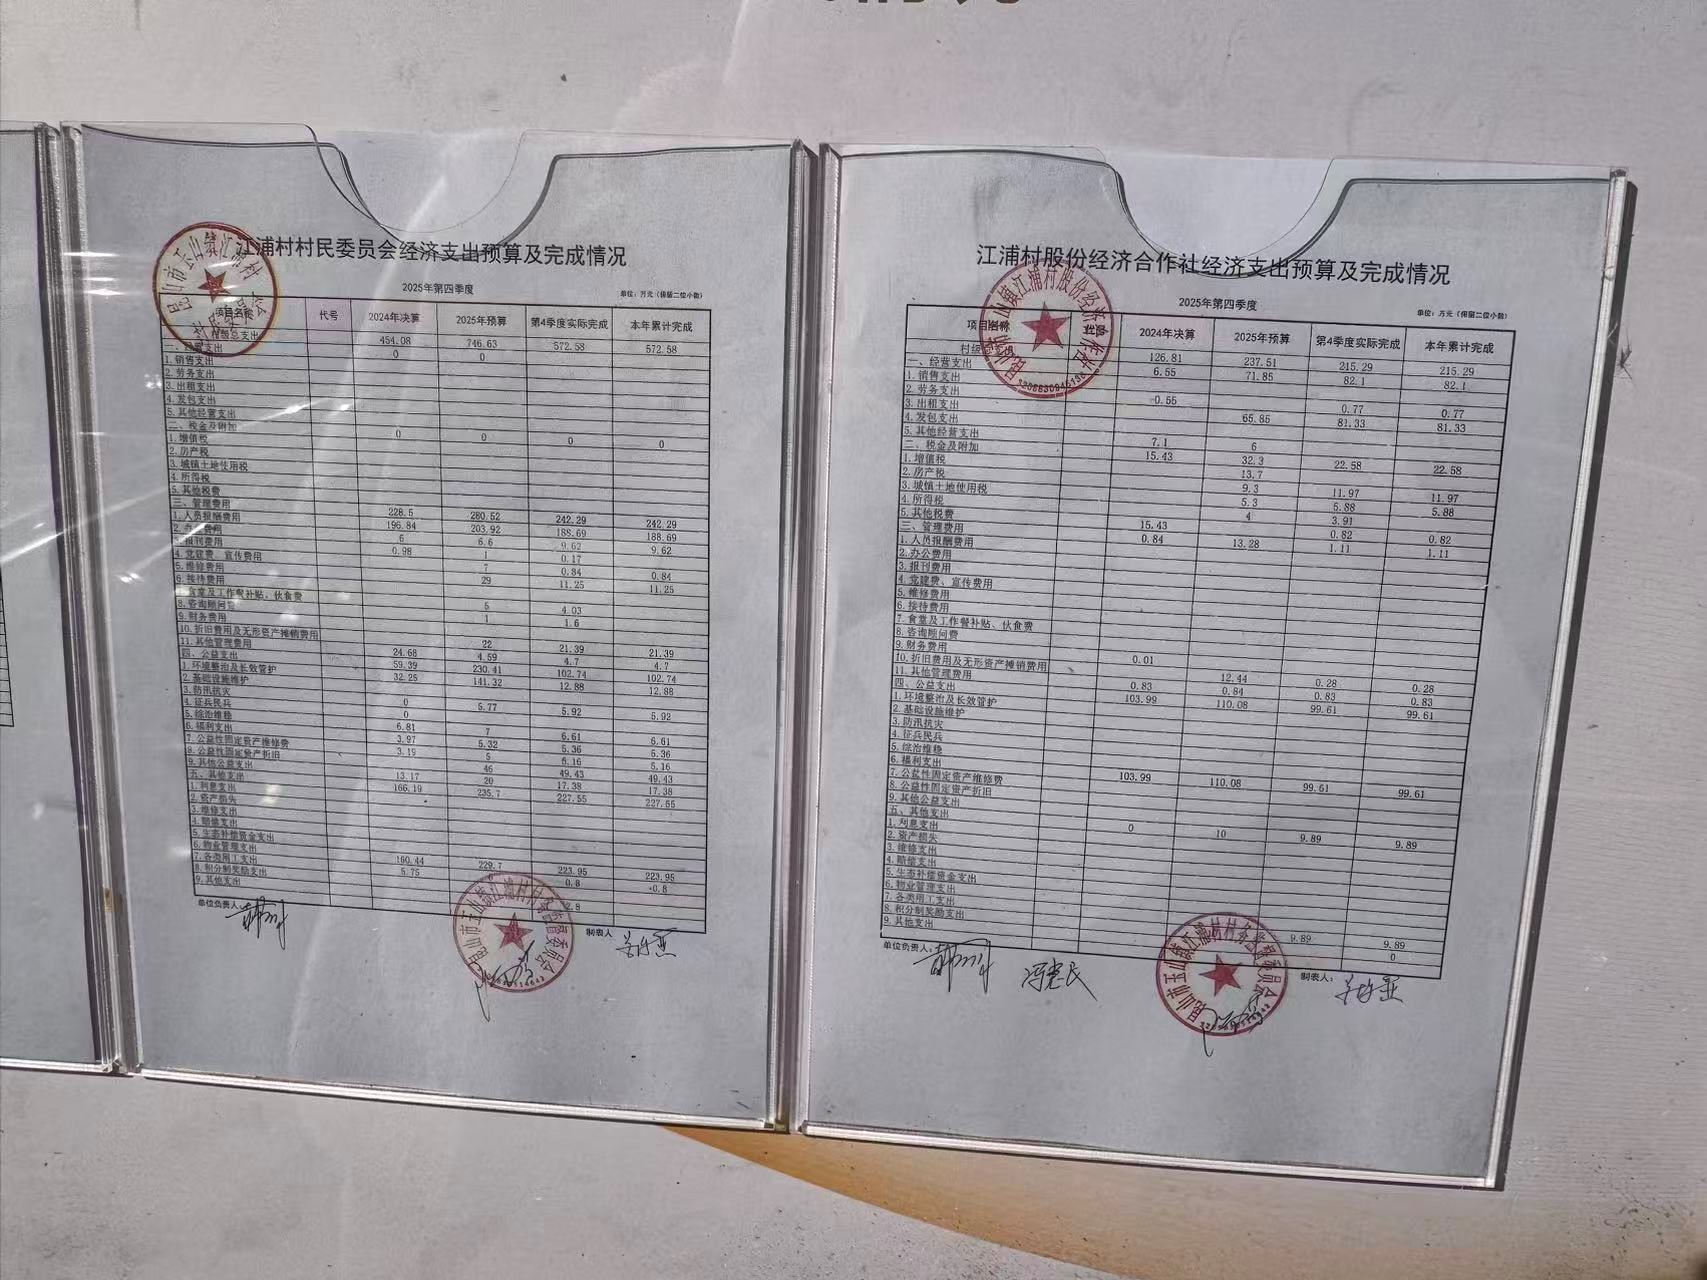 江浦村村民委员会经济支出预算及完成情况
2025年第四季度
单位：万元（保留二位小数）
代号 2024年决算 2025年预算 第4季度实际完成 本年累计完成
村级总支出 454.08 746.63 572.58 572.58
支出 0 0
1.销售支出
2.劳务支出
3.出租支出
4.发包支出
5.其他经营支出
二、税金及附加 0 0 0 0
1.增值税
2.房产税
3.城镇土地使用税
4.所得税
5.其他税费
三、管理费用 228.5 280.52 242.29 242.29
1.人员报酬费用 196.84 203.92 188.69 188.69
2.办公费用 6 6.6 9.62 9.62
3.报刊费用 0.98 1 0.17
4.党建费、宣传费用 7 0.84 0.84
5.维修费用 29 11.25 11.25
6.接待费用
食堂及工作餐补贴、伙食费 5 4.03
8.咨询顾问费 1 1.6
9.财务费用
10.折旧费用及无形资产摊销费用 22 21.39 21.39
11.其他管理费用 24.68 4.59 4.7 4.7
四、公益支出 59.39 230.41 102.74 102.74
1.环境整治及长效管护 32.25 141.32 12.88 12.88
2.基础设施维护
3.防汛抗灾 0 5.77 5.92 5.92
4.征兵民兵 0
5.综治维稳 6.81 7 6.61 6.61
6.福利支出 3.97 5.32 5.36 5.36
7.公益性固定资产维修费 3.19 5 5.16 5.16
8.公益性固定资产折旧 46 49.43 49.43
9.其他公益支出 13.17 20 17.38 17.38
五、其他支出 166.19 235.7 227.55 227.55
1.利息支出
2.资产损失
3.维修支出
4.赔偿支出
5.生态补偿资金支出
6.物业管理支出
7.各类用工支出 160.44 229.7 223.95 223.95
8.积分制奖励支出 5.75 0.8 0.8
9.其他支出 2.8
单位负责人： 制表人
昆山市玉山镇江浦村村务监督委员会
江浦村股份经济合作社经济支出预算及完成情况
2025年第四季度
单位：万元（保留二位小数）
2024年决算 2025年预算 第4季度实际完成 本年累计完成
村级 126.81 237.51 215.29 215.29
一、经营支出 6.55 71.85 82.1 82.1
1.销售支出
2.劳务支出 0.55 0.77 0.77
3.出租支出 65.85 81.33 81.33
4.发包支出
5.其他经营支出 7.1 6
二、税金及附加 15.43 32.3 22.58 22.58
1.增值税 13.7
2.房产税 9.3 11.97 11.97
3.城镇土地使用税 5.3 5.88 5.88
4.所得税 4 3.91
5.其他税费 15.43 0.82 0.82
三、管理费用 0.84 13.28 1.11 1.11
1.人员报酬费用
2.办公费用
3.报刊费用
4.党建费、宣传费用
5.维修费用
6.接待费用
7.食堂及工作餐补贴、伙食费
8.咨询顾问费
9.财务费用 0.01
10.折旧费用及无形资产摊销费用 12.44 0.28 0.28
11.其他管理费用 0.83 0.84 0.83 0.83
四、公益支出 103.99 110.08 99.61 99.61
1.环境整治及长效管护
2.基础设施维护
3.防汛抗灾
4.征兵民兵
5.综治维稳
6.福利支出
7.公益性固定资产维修费 103.99 110.08 99.61 99.61
8.公益性固定资产折旧
9.其他公益支出
五、其他支出 0 10 9.89 9.89
1.利息支出
2.资产损失
3.维修支出
4.赔偿支出
5.生态补偿资金支出
6.物业管理支出
7.各类用工支出
8.积分制奖励支出 9.89 9.89
9.其他支出 0
单位负责人： 冯惠民 制表人：
昆山市玉山镇江浦村村务监督委员会